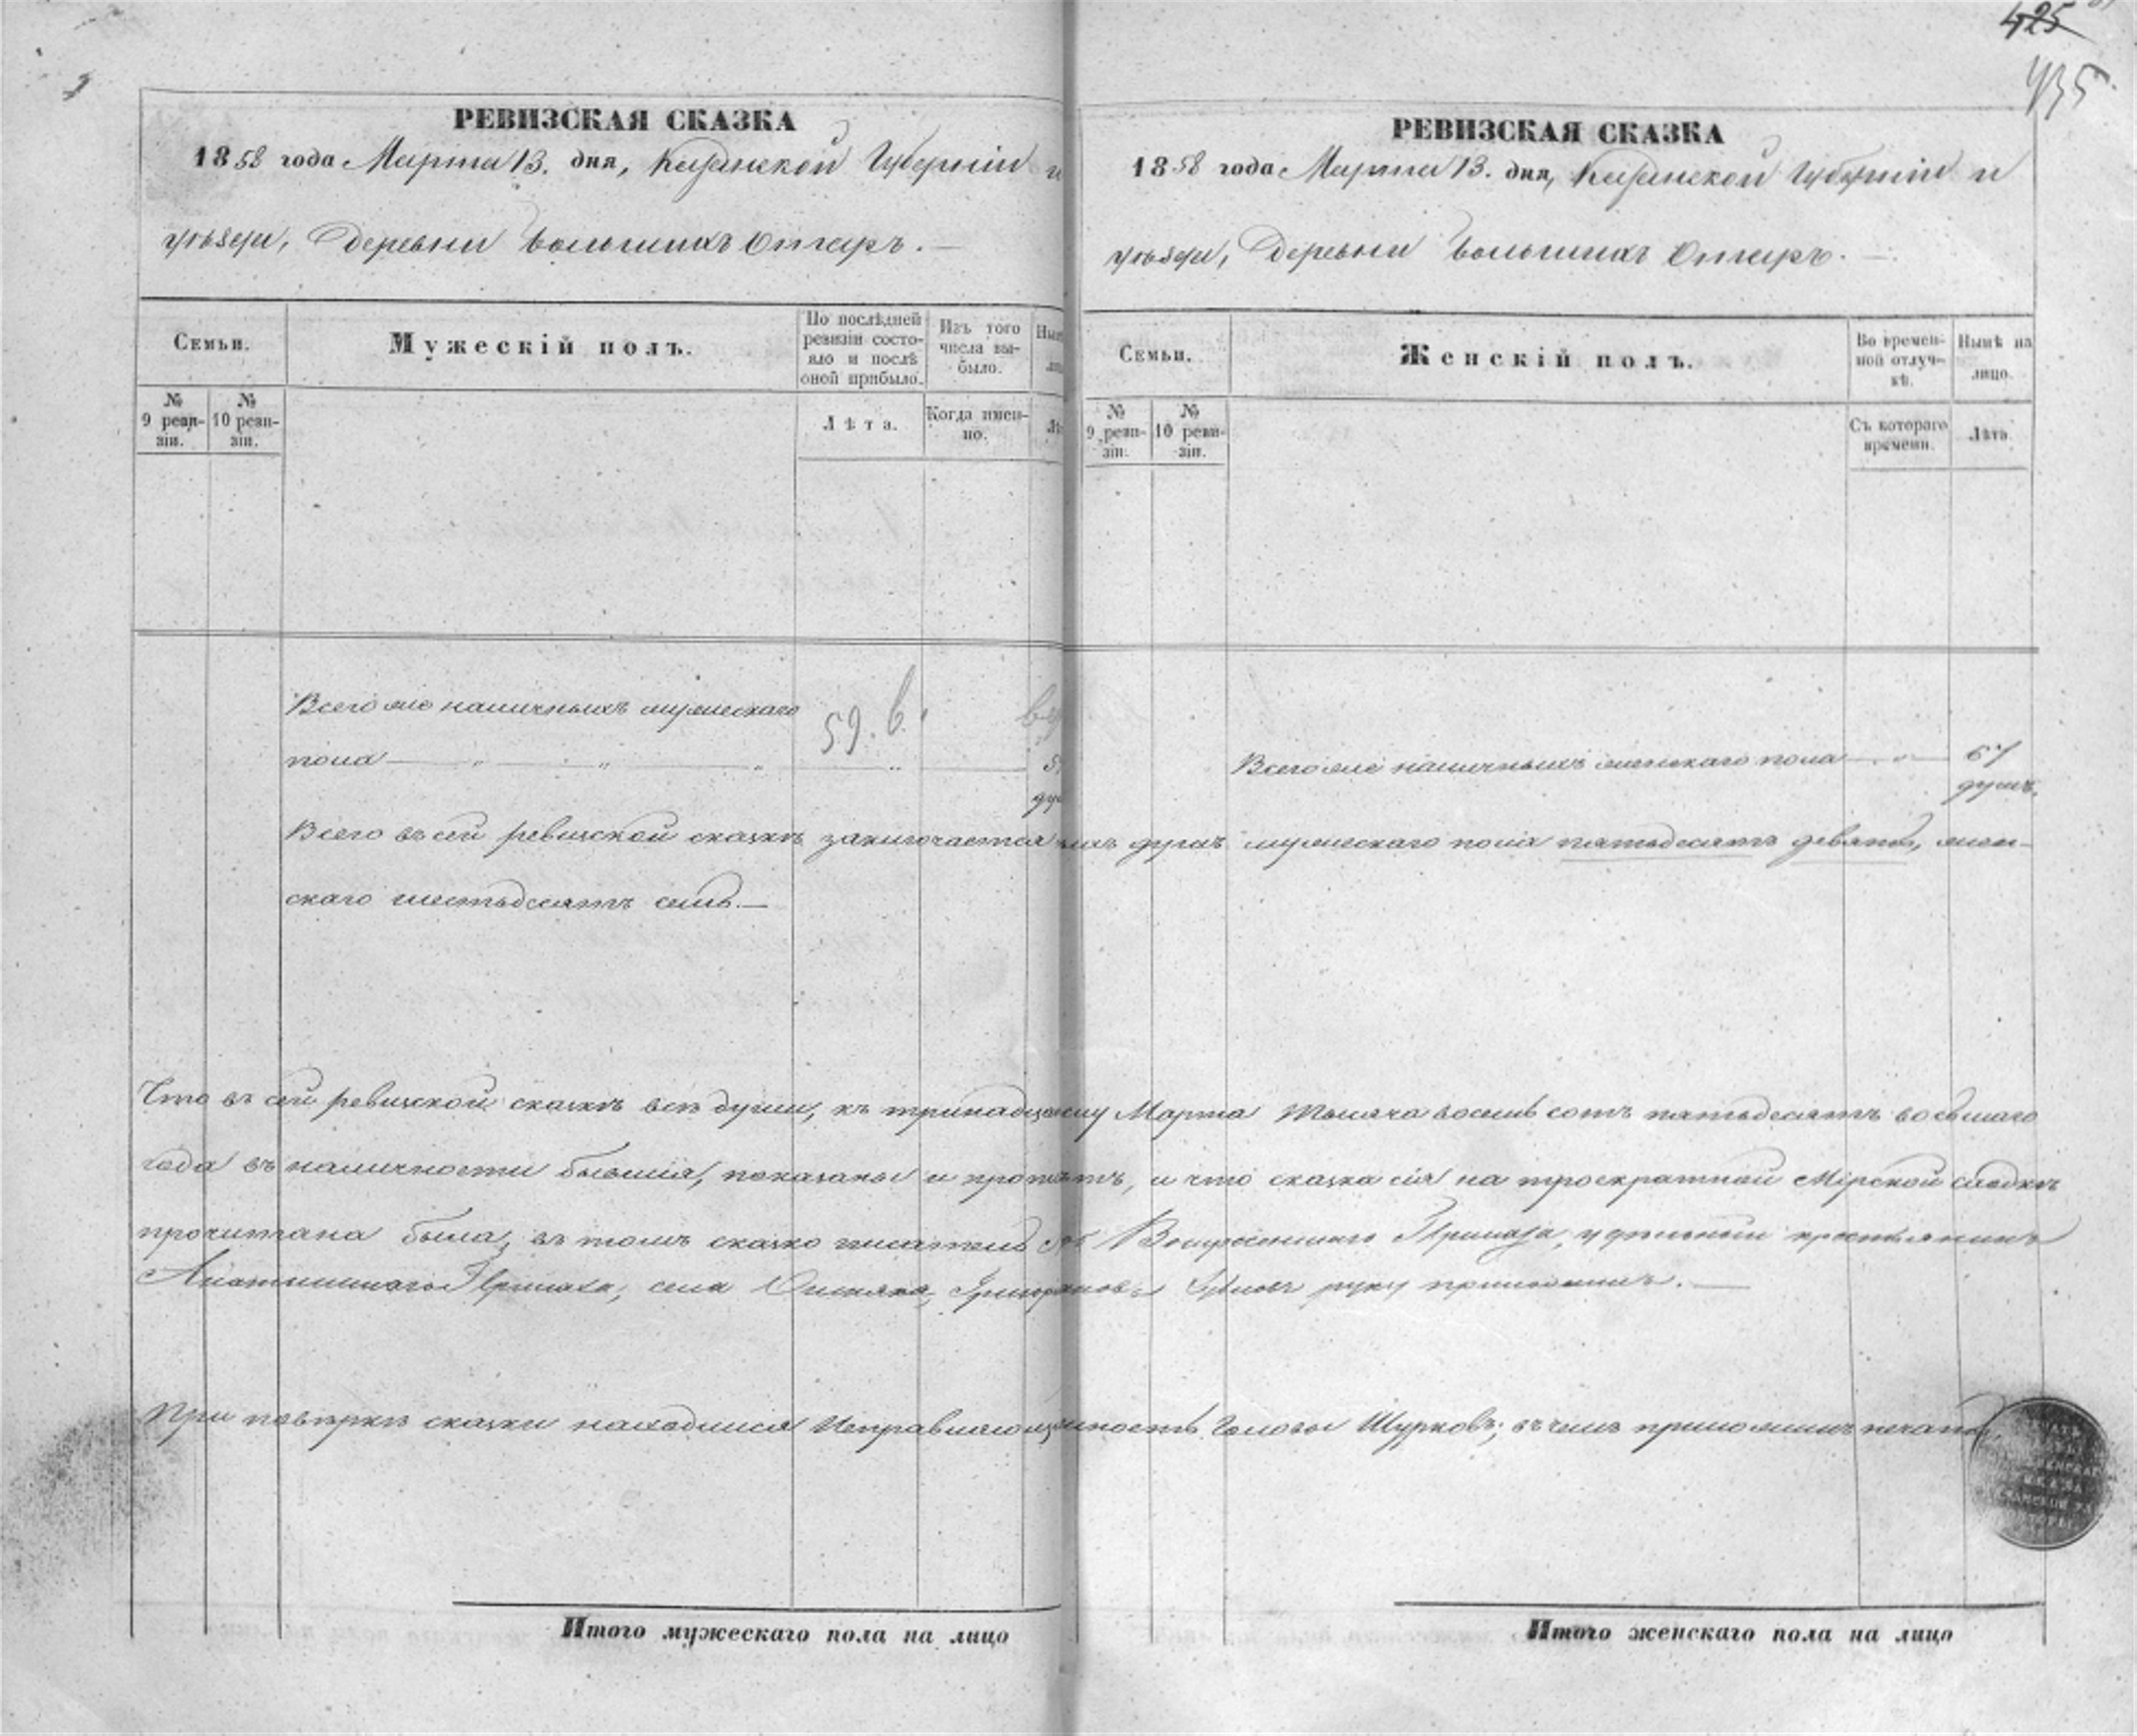 425
435
РЕВИЗСКАЯ СКАЗКА
1858 года Марта 13. дня, Казанской Губерніи и
уѣзда, Деревни Большихъ Отаръ. —
Семьи.
Мужескій полъ.
По послѣдней ревизіи состояло и послѣ оной прибыло.
Изъ того числа выбыло.
№ 9 ревизіи.
№ 10 ревизіи.
Лѣта.
Когда именно.
Всего же наличныхъ мужескаго
пола — „ — „ — „ — „ —
59. в.
Всего въ сей ревизской сказкѣ заключается
скаго шестьдесятъ семь. —
РЕВИЗСКАЯ СКАЗКА
1858 года Марта 13. дня, Казанской Губерніи и
уѣзда, Деревни Большихъ Отаръ. —
Семьи.
Женскій полъ.
Во временной отлучкѣ.
Нынѣ на лицо.
№ 9 ревизіи.
№ 10 ревизіи.
Съ котораго времени.
Лѣта.
Всего же наличныхъ женскаго пола — „ — 67
душъ.
душъ мужескаго пола пятьдесятъ девять, жен-
Что въ сей ревизской сказкѣ всѣ души, къ тринадцатому Марта тысяча восемь сотъ пятьдесятъ восьмаго
года въ наличности бывшія, показаны и, и что сказка сія на троекратной Мірской сходкѣ
прочитана была, въ томъ Воскресенскаго Приказа, удѣльный крестьянинъ
Приказа, села руку приложилъ. —
При повѣркѣ сказки находился Исправляющій должность Головы Шурковъ; въ чемъ приложилъ печать.
Итого мужескаго пола на лицо
Итого женскаго пола на лицо